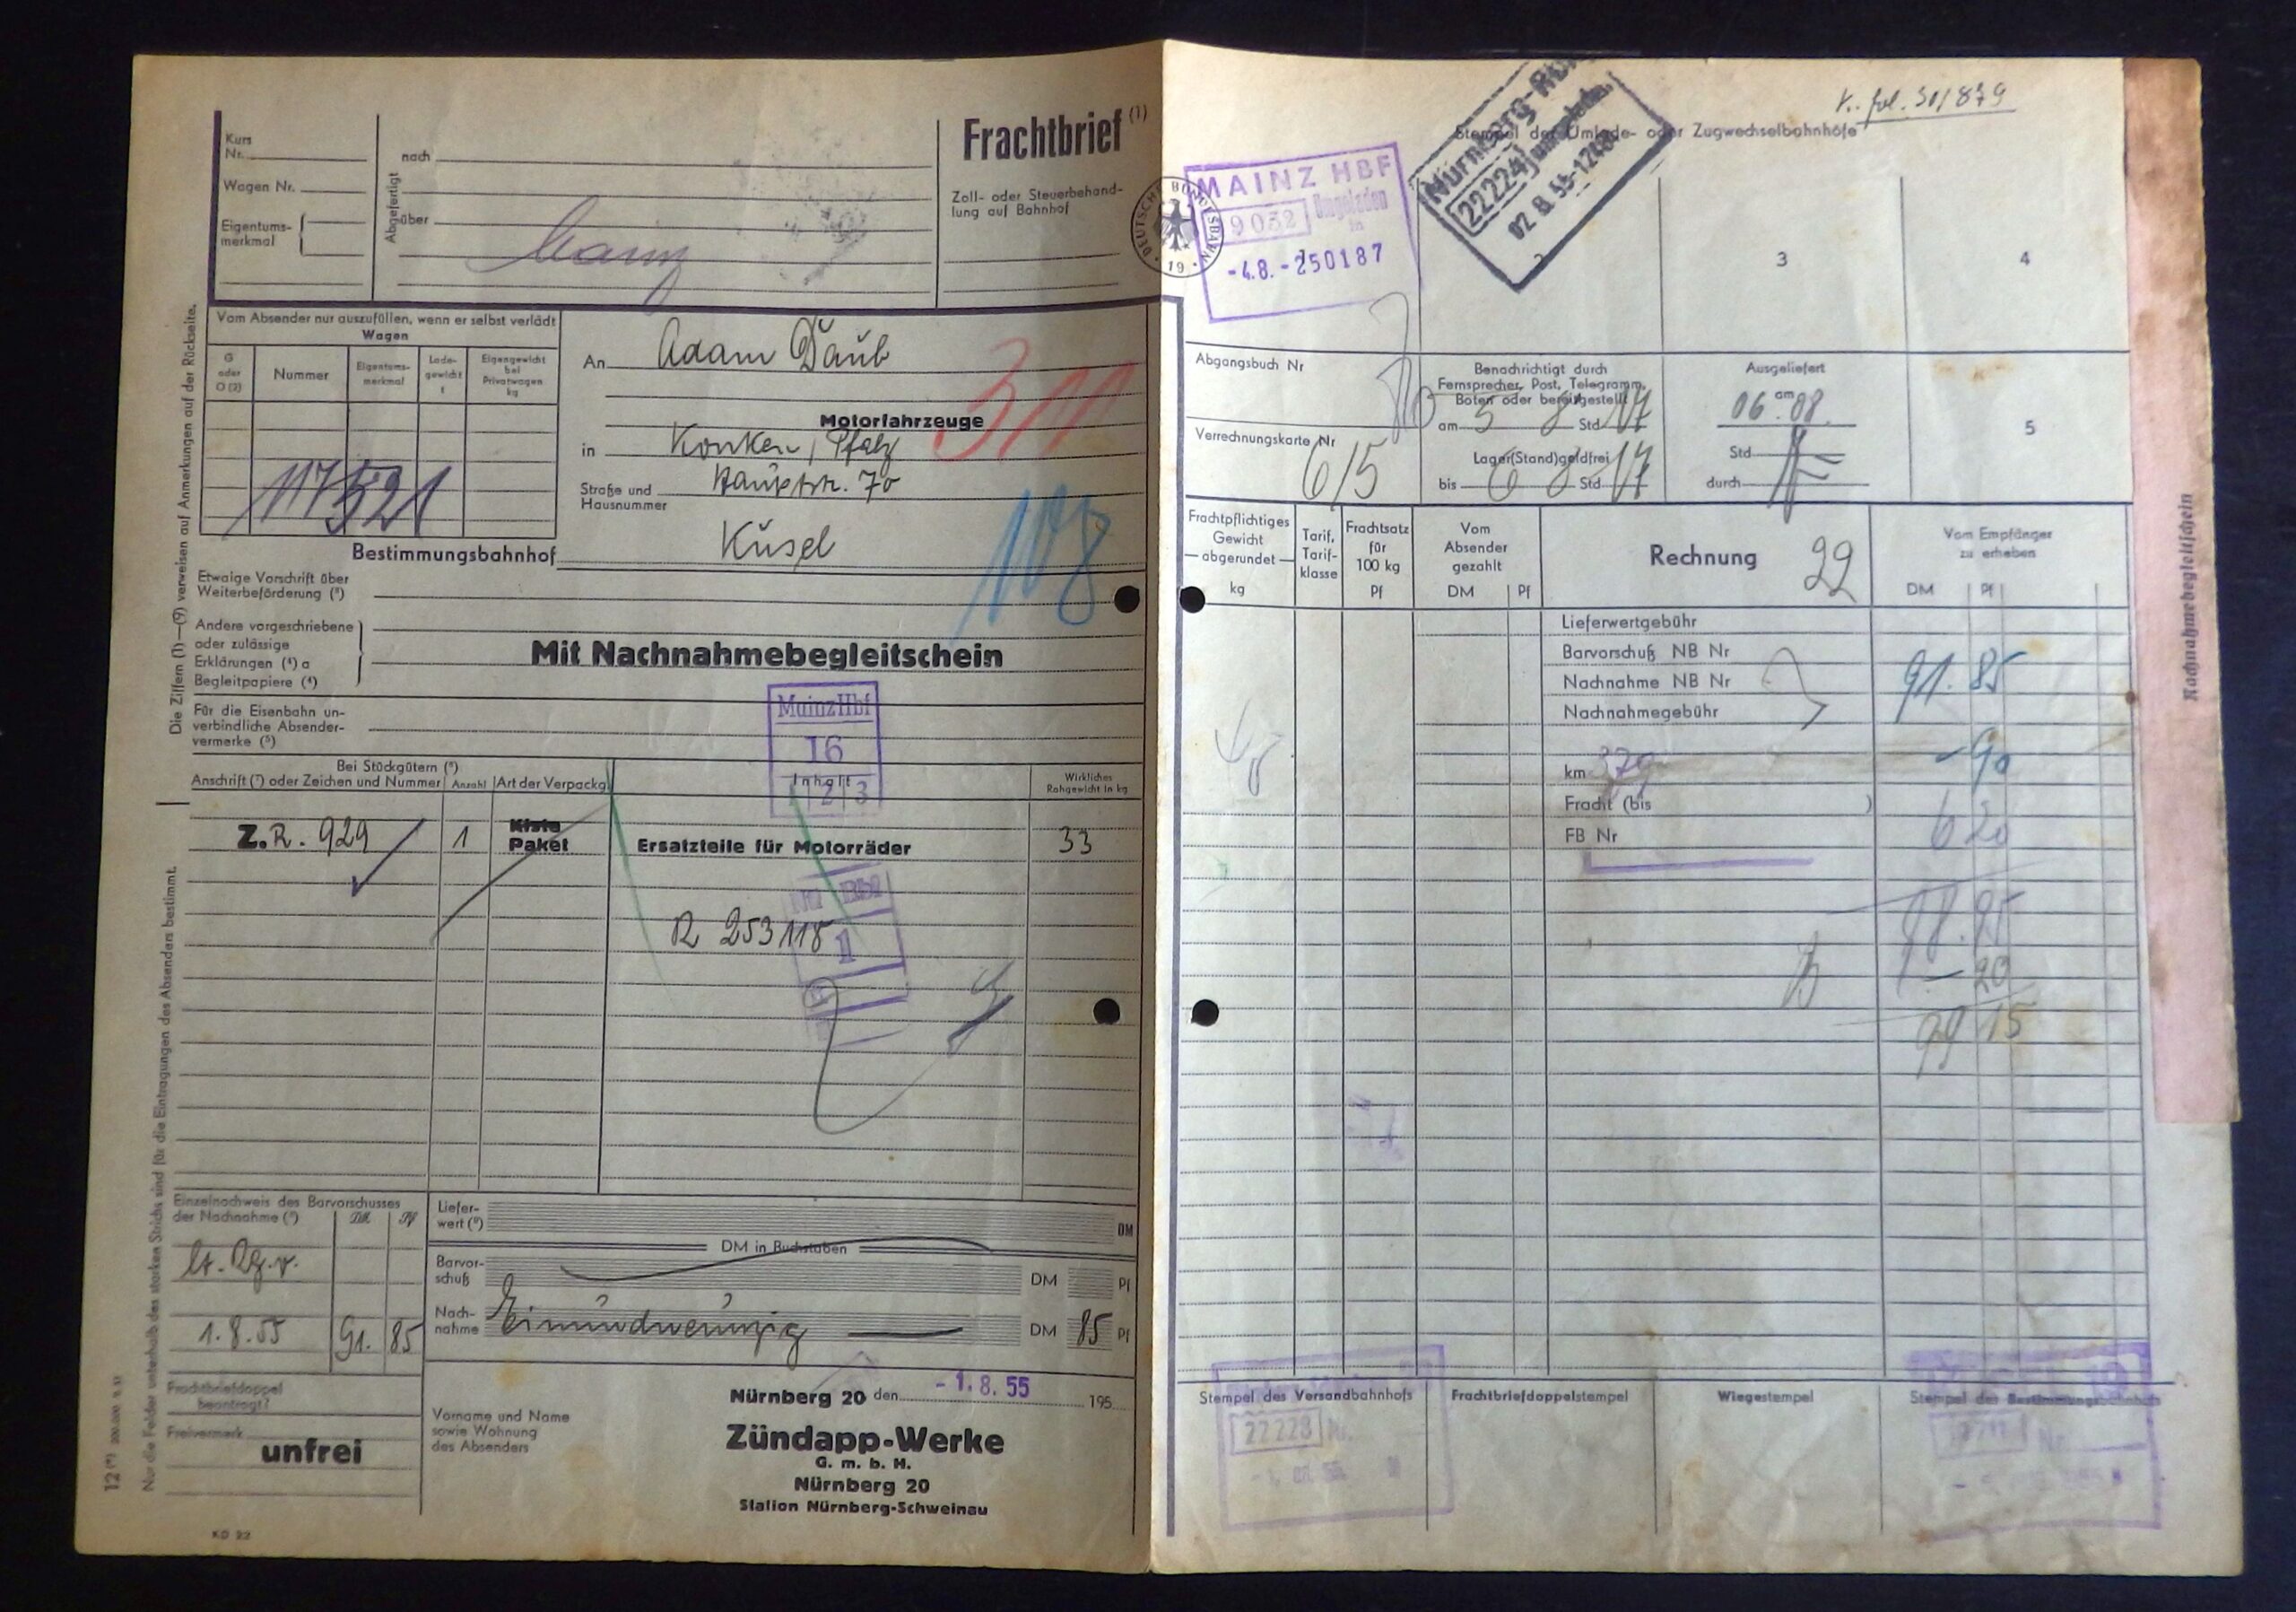 Frachtbrief (1)
Kurs
Nr.
Wagen Nr.
Eigentums-
merkmal
Abgefertigt
nach
über
Mainz
Zoll- oder Steuerbehand-
lung auf Bahnhof
DEUTSCHE BUNDESBAHN
19
Die Ziffern (1)—(9) verweisen auf Anmerkungen auf der Rückseite.
Vom Absender nur auszufüllen, wenn er selbst verlädt
Wagen
G
oder
O (2)
Nummer
Eigentums-
merkmal
Lade-
gewicht
t
Eigengewicht
bei
Privatwagen
kg
117521
An Adam Daub
311
Motorfahrzeuge
in Konken, Pfalz
Straße und
Hausnummer
Hauptstr. 70
108
Bestimmungsbahnhof Kusel
Etwaige Vorschrift über
Weiterbeförderung (3)
Andere vorgeschriebene
oder zulässige
Erklärungen (4) a
Begleitpapiere (4)
Mit Nachnahmebegleitschein
Für die Eisenbahn un-
verbindliche Absender-
vermerke (5)
MainzHbf
16
2 3
Bei Stückgütern (6)
Anschrift (7) oder Zeichen und Nummer
Anzahl
Art der Verpackg
Inhalt
Wirkliches
Rohgewicht in kg
Z.R. 929
1
Kiste
Paket
Ersatzteile für Motorräder
33
R 253118
1
Nur die Felder unterhalb des starken Strichs sind für die Eintragungen des Absenders bestimmt.
Einzelnachweis des Barvorschusses
der Nachnahme (8)
DM
Pf
lt. Rg. v.
1.8.55 91. 85
Liefer-
wert (9)
DM
DM in Buchstaben
Barvor-
schuß
DM
Pf
Nach-
nahme
Einundneunzig
DM 85 Pf
Frachtbriefdoppel
beantragt?
Freivermerk
unfrei
Nürnberg 20 den - 1. 8. 55 195
Vorname und Name
sowie Wohnung
des Absenders
Zündapp-Werke
G. m. b. H.
Nürnberg 20
Station Nürnberg-Schweinau
KD 22
Stempel der Umlade- oder Zugwechselbahnhöfe
MAINZ HBF
9032 Umgeladen
in
-4.8.-250187
22224 umgeladen
02 8. 55-12
3
4
5
Abgangsbuch Nr
Verrechnungskarte Nr
6/5
Benachrichtigt durch
Fernsprecher, Post, Telegramm,
Boten oder bereitgestellt
am 5 8 Std 17
Lager(Stand)geldfrei
bis 6 8 Std 17
Ausgeliefert
am
06. 08.
Std
durch
Frachtpflichtiges
Gewicht
abgerundet
kg
Tarif,
Tarif-
klasse
Frachtsatz
für
100 kg
Pf
Vom
Absender
gezahlt
DM
Pf
Rechnung 22
Vom Empfänger
zu erheben
DM
Pf
Lieferwertgebühr
Barvorschuß NB Nr
Nachnahme NB Nr
91. 85
Nachnahmegebühr
- 90
km 379
Fracht (bis )
6 20
FB Nr
98.95
- 20
99 15
Nachnahmebegleitschein
Stempel des Versandbahnhofs
Frachtbriefdoppelstempel
Wiegestempel
Stempel des Bestimmungsbahnhofs
22223